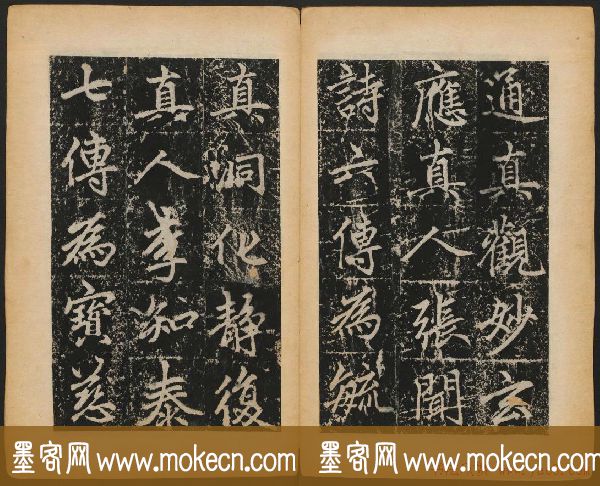 通真觀妙玄
應真人張聞
詩六傳為毓
真洞化静復
真人李知泰
七傳為寶慈
墨客网 www.mokecn.com
墨客网 www.mokecn.com